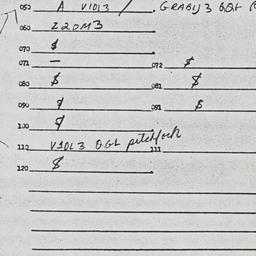 050 A V10L3 / . GRABU3 BGL
060 220M3
070 $
071 — 072 $
080 $ 081 $
090 $ 091 $
100 $
112 V10L3 BGL pitchfork 111
120 $